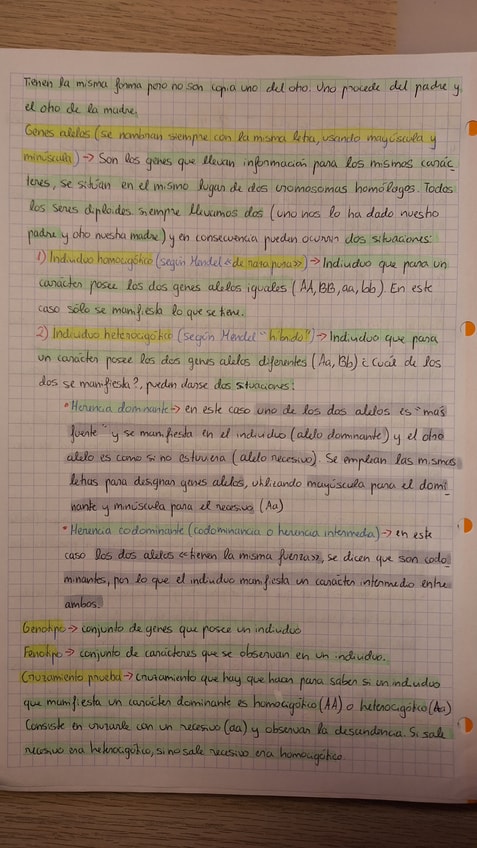 Tienen la misma forma pero no son copia uno del otro. Uno procede del padre y
el otro de la madre.
Genes alelos (se nombran siempre con la misma letra, usando mayúscula y
minúscula) → Son los genes que llevan información para los mismos carác-
teres, se sitúan en el mismo lugar de dos cromosomas homólogos. Todos
los seres diploides siempre llevamos dos (uno nos lo ha dado nuestro
padre y otro nuestra madre) y en consecuencia pueden ocurrir dos situaciones:
1) Individuo homocigótico (según Mendel «de raza pura») → Individuo que para un
carácter posee los dos genes alelos iguales (AA, BB, aa, bb). En este
caso sólo se manifiesta lo que se tiene.
2) Individuo heterocigótico (según Mendel "híbrido") → Individuo que para
un carácter posee los dos genes alelos diferentes (Aa, Bb) ¿Cuál de los
dos se manifiesta?, pueden darse dos situaciones:
* Herencia dominante → en este caso uno de los dos alelos es "más
fuerte" y se manifiesta en el individuo (alelo dominante) y el otro
alelo es como si no estuviera (alelo recesivo). Se emplean las mismas
letras para designar genes alelos, utilizando mayúscula para el domi-
nante y minúscula para el recesivo (Aa)
* Herencia codominante (codominancia o herencia intermedia) → en este
caso los dos alelos «tienen la misma fuerza», se dicen que son codo-
minantes, por lo que el individuo manifiesta un carácter intermedio entre
ambos.
Genotipo → conjunto de genes que posee un individuo
Fenotipo → conjunto de carácteres que se observan en un individuo.
Cruzamiento prueba → Cruzamiento que hay que hacer para saber si un individuo
que manifiesta un carácter dominante es homocigótico (AA) o heterocigótico (Aa)
Consiste en cruzarle con un recesivo (aa) y observar la descendencia. Si sale
recesivo era heterocigótico, si no sale recesivo era homocigótico.